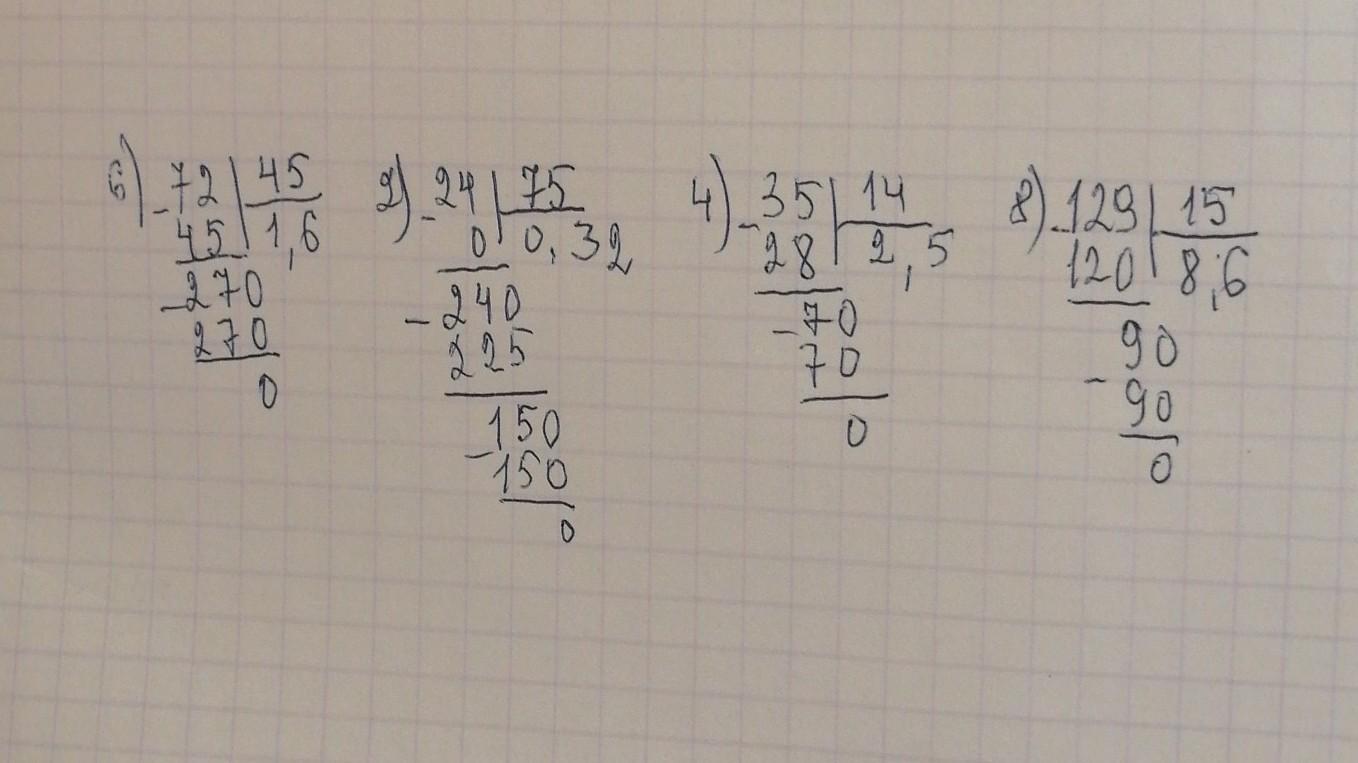 6) -72 | 45
45 | 1,6
-270
270
0
2) -24 | 75
0 | 0,32
-240
225
-150
150
0
4) -35 | 14
28 | 2,5
-70
70
0
8) -129 | 15
120 | 8,6
90
- 90
0